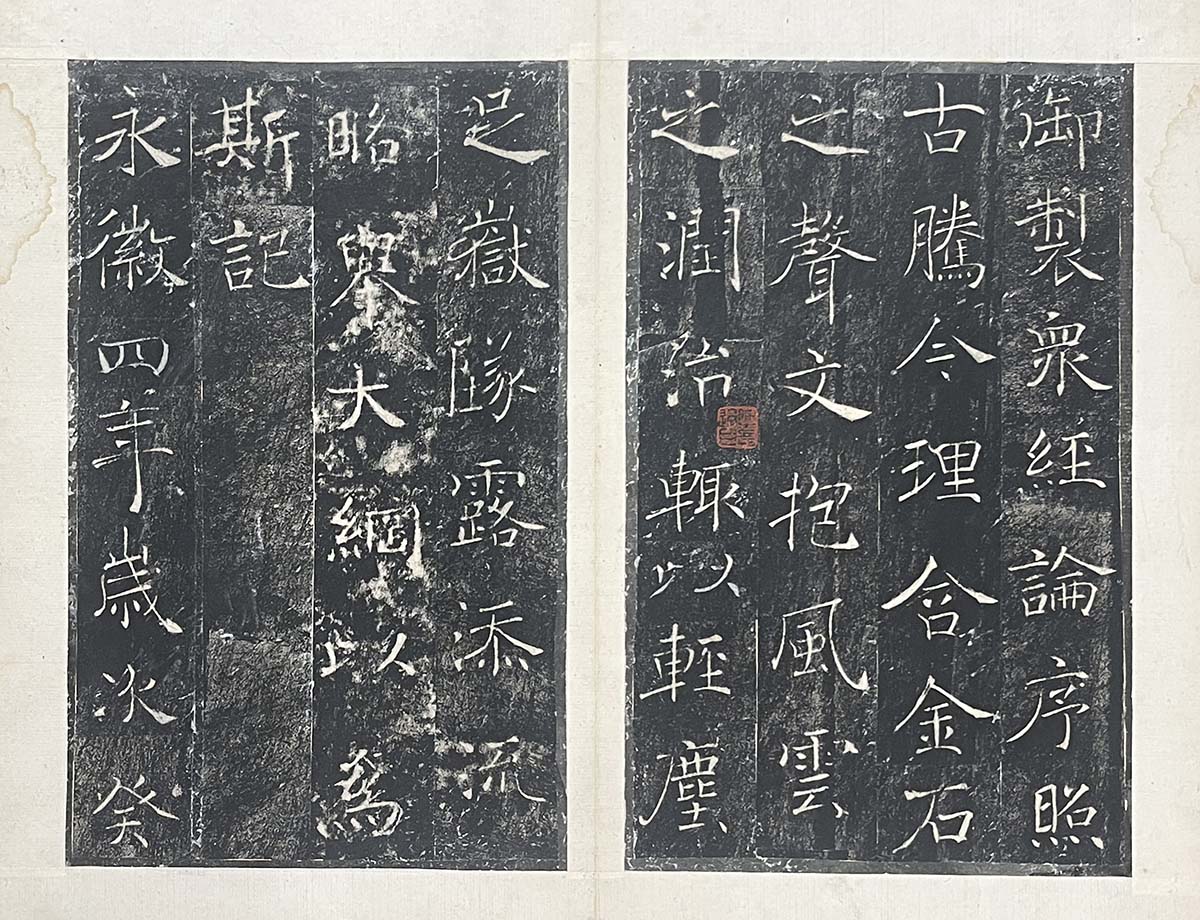 御製眾經論序照
古騰今理含金石
之聲文抱風雲
之潤治輒以輕塵
足嶽墜露添流
略舉大綱以為
斯記
永徽四年歲次癸